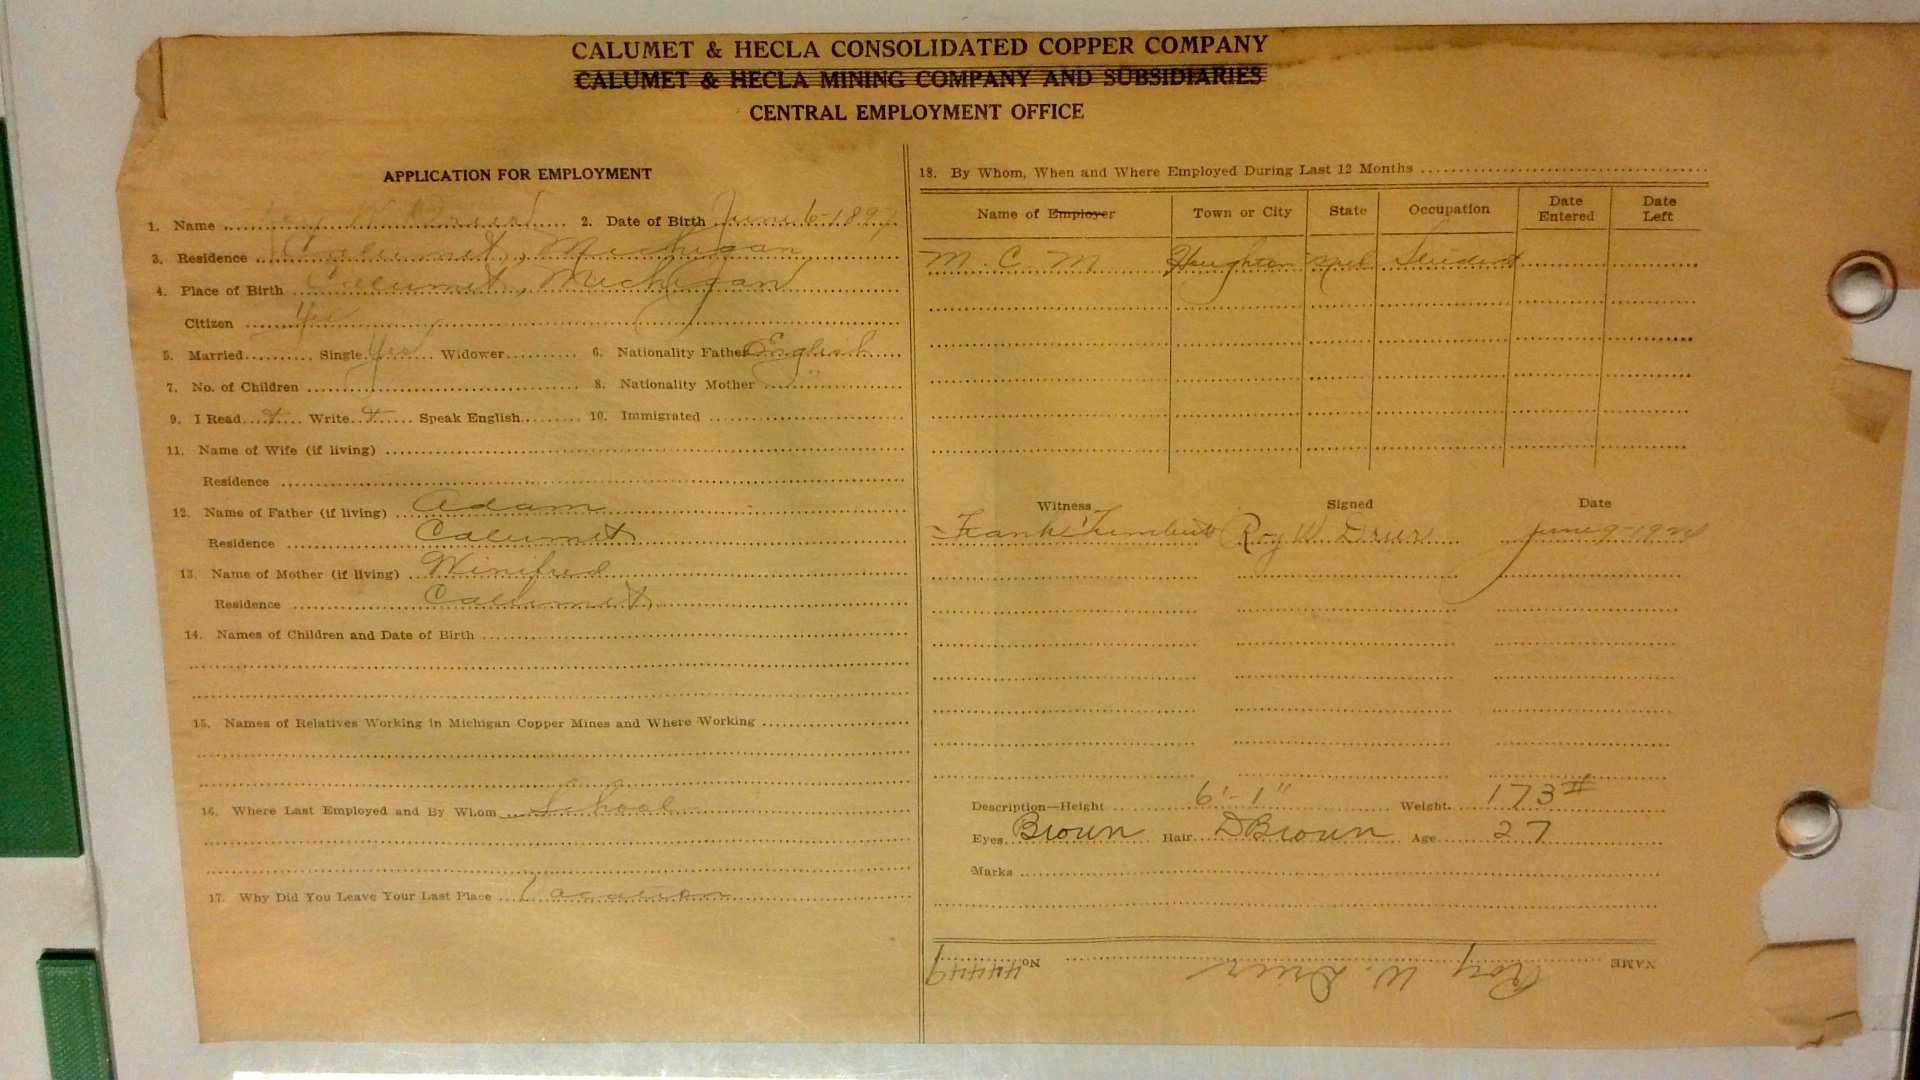 CALUMET & HECLA CONSOLIDATED COPPER COMPANY
CALUMET & HECLA MINING COMPANY AND SUBSIDIARIES
CENTRAL EMPLOYMENT OFFICE
APPLICATION FOR EMPLOYMENT
1. Name Roy W. Drier 2. Date of Birth June 6-1897
3. Residence Calumet, Michigan
4. Place of Birth Calumet, Michigan
Citizen Yes
5. Married Single Yes Widower 6. Nationality Father English
7. No. of Children 8. Nationality Mother "
9. I Read + Write + Speak English 10. Immigrated
11. Name of Wife (if living)
Residence
12. Name of Father (if living) Adam
Residence Calumet
13. Name of Mother (if living) Winifred
Residence Calumet
14. Names of Children and Date of Birth
15. Names of Relatives Working in Michigan Copper Mines and Where Working
16. Where Last Employed and By Whom School
17. Why Did You Leave Your Last Place Vacation
18. By Whom, When and Where Employed During Last 12 Months
Name of Employer Town or City State Occupation Date Entered Date Left
M. C. M Houghton Mich Student
Witness Signed Date
Frank Roy W. Drier June 9-1924
Description—Height 6'-1" Weight 173#
Eyes Brown Hair D Brown Age 27
Marks
NAME Roy W. Drier No. 44449